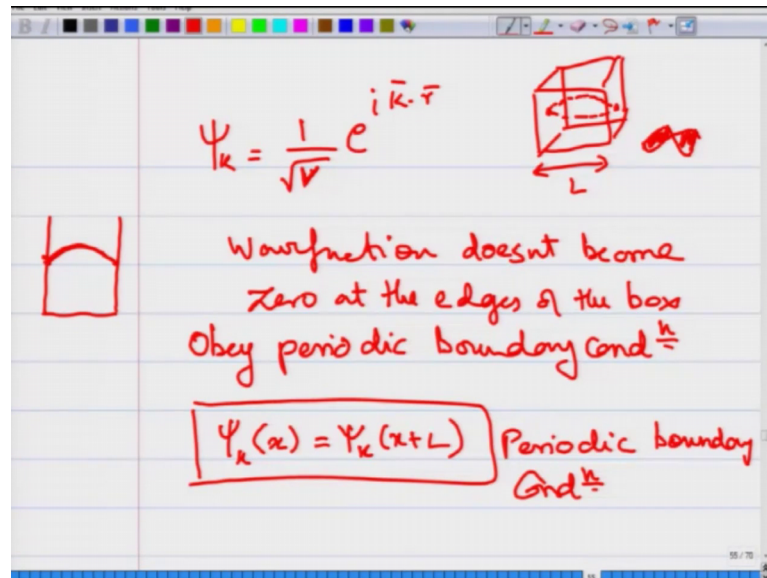 Ψ_k = 1/√V e^{i k̄·r̄}
L
Wavefnction doesnt become
Zero at the edges of the box
Obey periodic boundary cond^n
Ψ_k(x) = Ψ_k(x+L) Periodic boundary
Cond^n
55 / 70